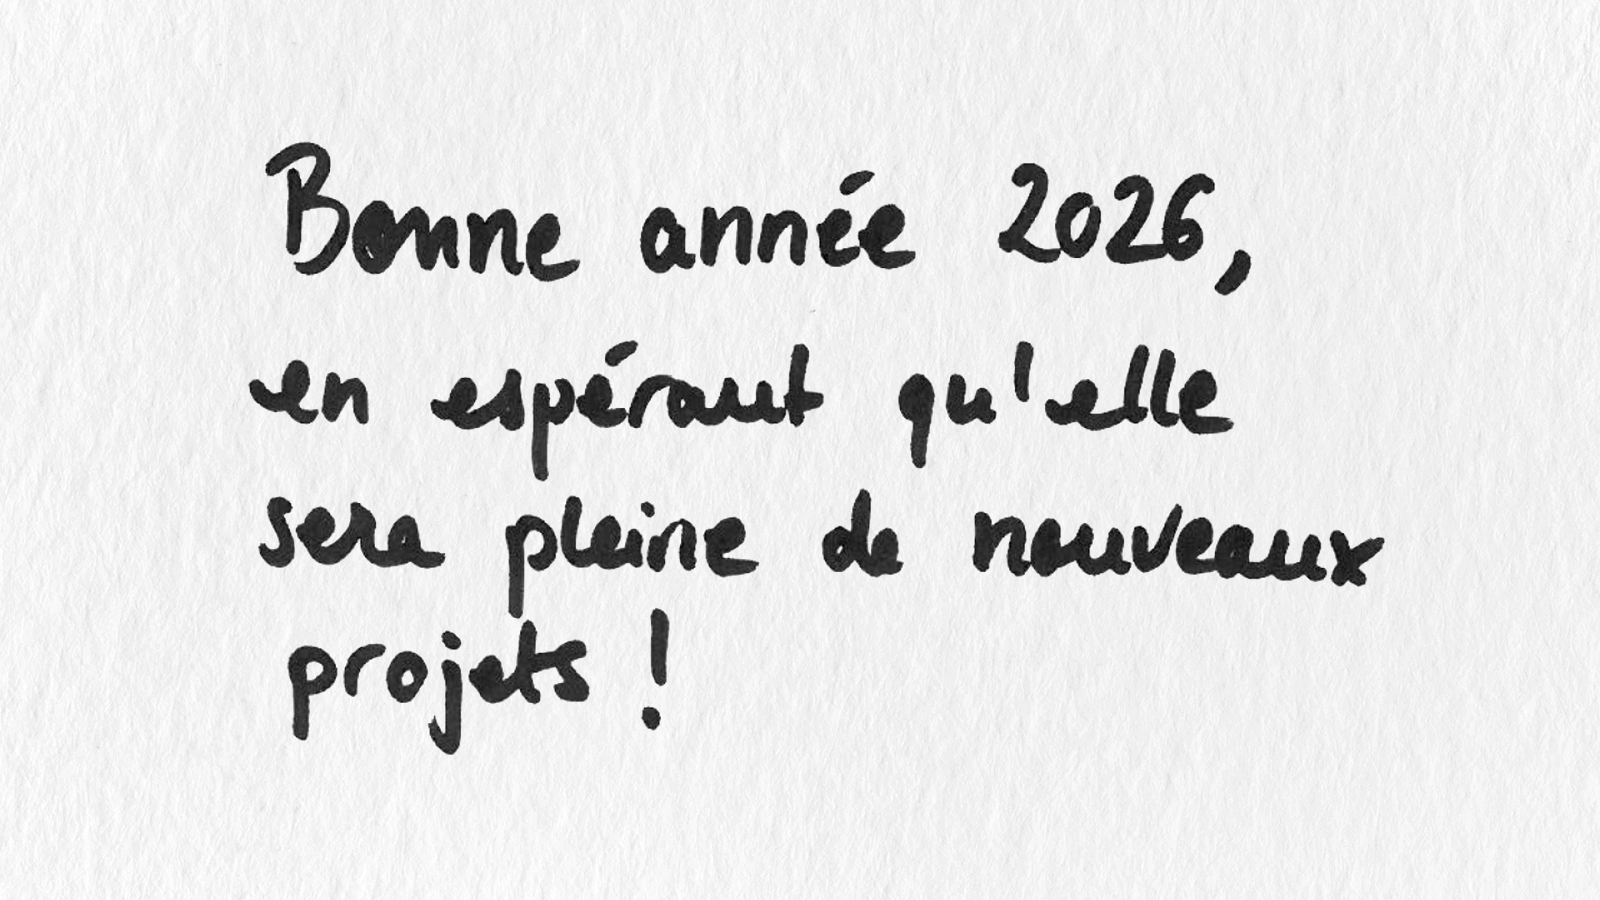 Bonne année 2026,
en espérant qu'elle
sera pleine de nouveaux
projets !